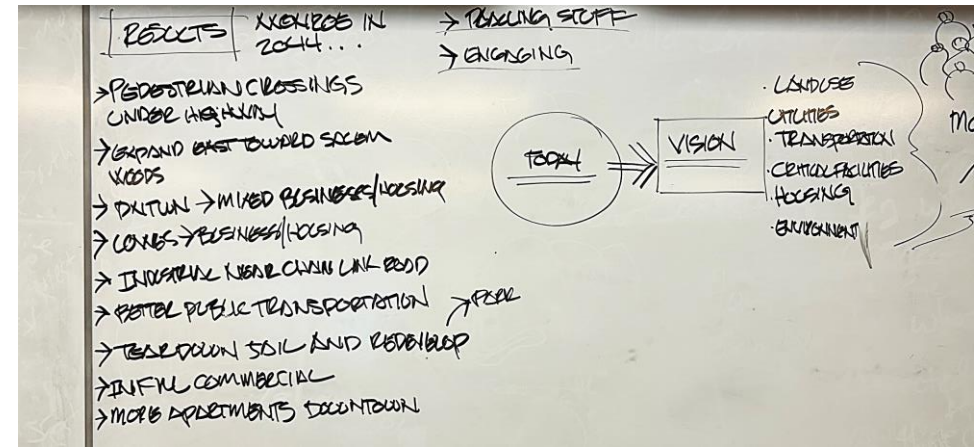 RESULTS
MONROE IN
2044...
→ ENGAGING
→ PEDESTRIAN CROSSINGS
UNDER HIGHWAY
→ EXPAND EAST TOWARD SALEM
WOODS
→ DNTWN → MIXED BUSINESSES/HOUSING
→ LOWES → BUSINESS/HOUSING
→ INDUSTRIAL NEAR CHAIN LAKE ROAD
→ BETTER PUBLIC TRANSPORTATION
→ PARK
→ TEAR DOWN JAIL AND REDEVELOP
→ INFILL COMMERCIAL
→ MORE APARTMENTS DOWNTOWN
TODAY
VISION
· LAND USE
· UTILITIES
· TRANSPORTATION
· CRITICAL FACILITIES
· HOUSING
· ENVIRONMENT